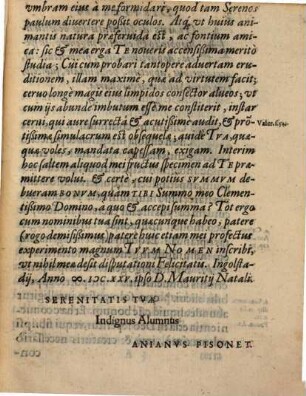 vmbram eius à me formidari, quod tam Serenos
paulum divertere possit oculos. Atq, vt huius animantis
natura præferuidâ est, ac fontium amica:
sic & mea erga Te noveris accensissima meritò
studia; Cui cum probari tantopere advertam eruditionem,
illam maximè, quæ ad virtutem facit;
cerva longè magis eius limpidos consector alueos; vt
cum iis abunde imbutum esse me constiterit, instar
cerni, qui aure surrectâ & acutissimè audit, & prõtissima
simulacrum est obsequela, auidè TVA, quæqua
voles, mandata capessam, exigam. Interim
hoc saltem aliquod mei fructus specimen ad TE præmittere
volui, & certè, cui potius SVMMVM debueram
BONVM, quàm TIBI Summo meo Clementissimo
Domino, a quo & accepi summa? Tot ergo
cum nominibus tua sint, quacunque habeo, patere
(rogo demississimè) patere huic etiam mei profectus
experimento magnum TVVM NOMEN inscribi,
vt nihil mea desit disputationi Felicitatis. Ingolstadij,
Anno ∞. IↃC. XXV. ipso D. Mauritij Natali.
SERENITATIS TVÆ
Indignus Alumnus
ANIANVS PISONET.